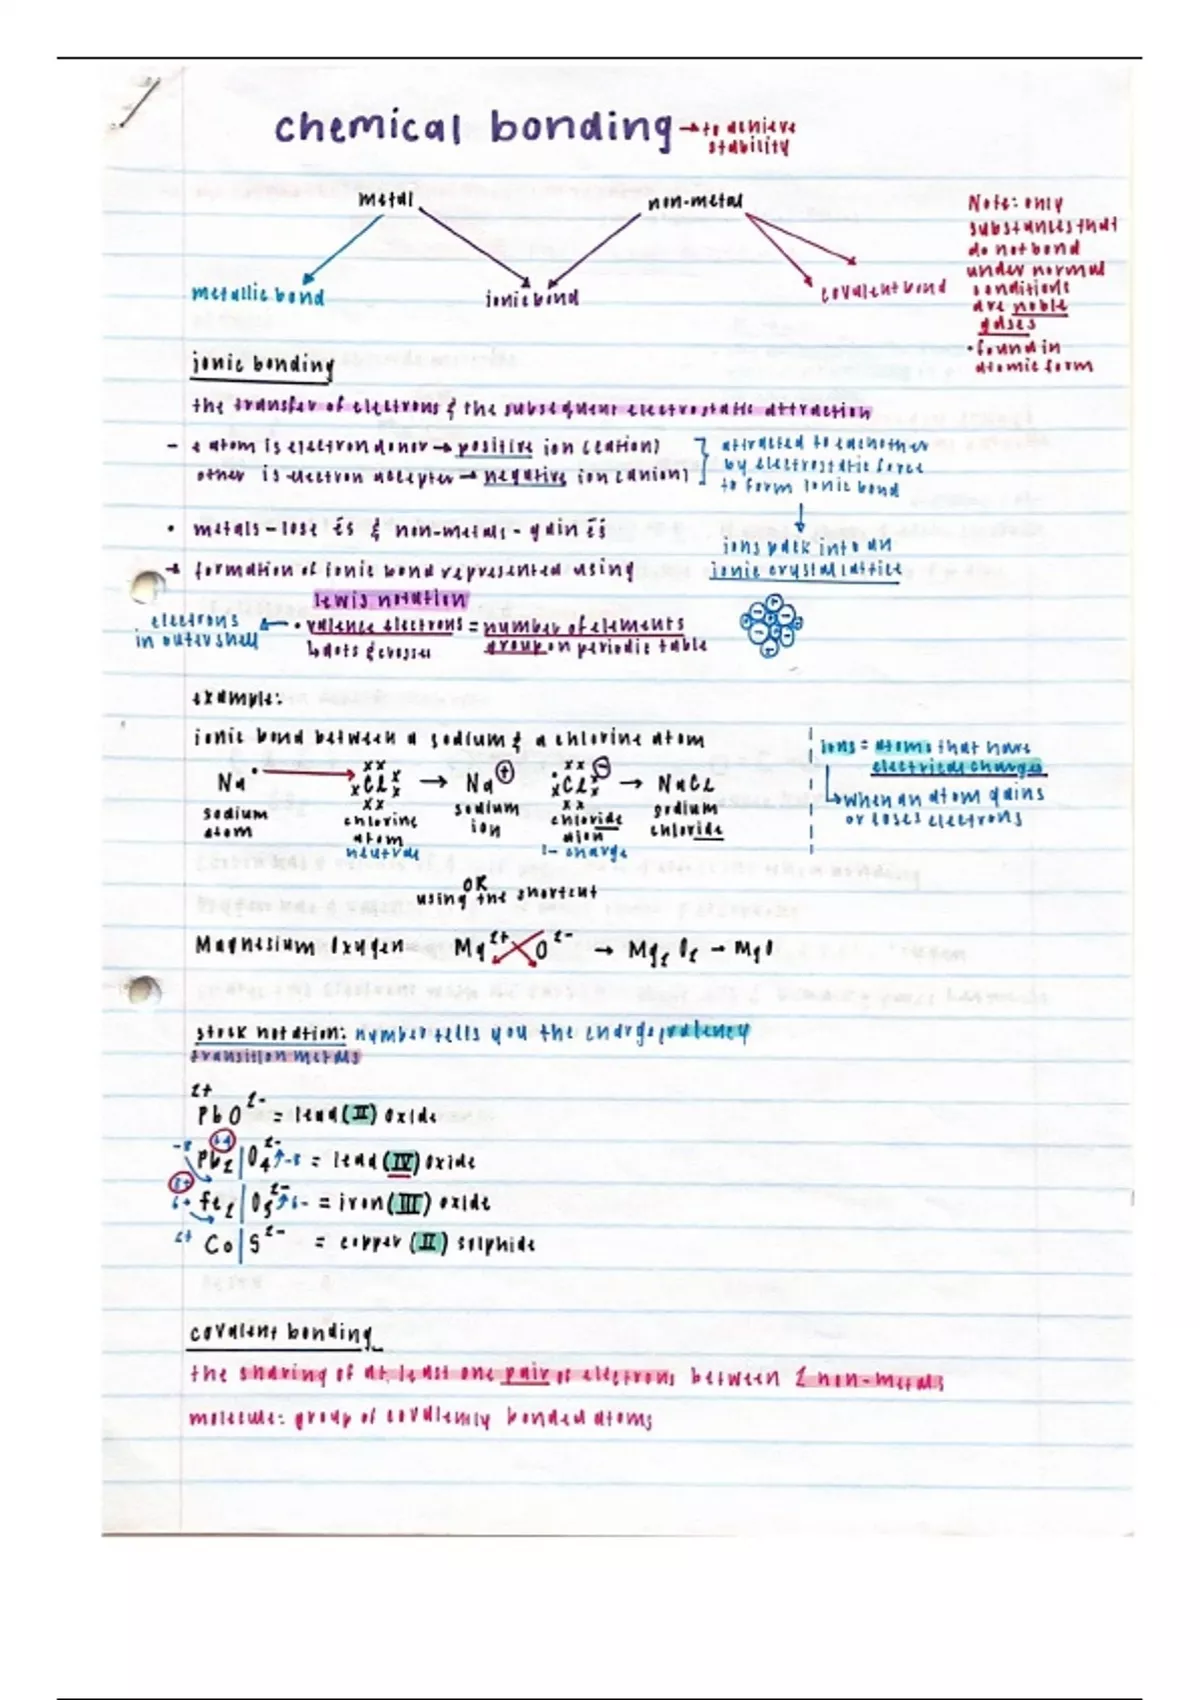 chemical bonding → to achieve
stability
metal
non-metal
metallic bond
ionic bond
covalent bond
Note: only
substances that
do not bond
under normal
conditions
are noble
gases
• found in
atomic form
ionic bonding
the transfer of electrons & the subsequent electrostatic attraction
- atom is electron donor → positive ion (cation)
other is electron accepter → negative ion (anion)
attracted to eachother
by electrostatic force
to form ionic bond
↓
ions pack into an
ionic crystal lattice
• metals - lose és & non-metals - gain és
→ formation of ionic bond represented using
lewis notation
• valence electrons = number of elements
group on periodic table
↳ dots & crosses
electrons
in outer shell
example:
ionic bond between a sodium & a chlorine atom
Na• → Cl → Na+ Cl− → NaCl
sodium
atom
chlorine
atom
neutral
sodium
ion
chloride
1- charge
sodium
chloride
ions = atoms that have
electrical charges
↳ when an atom gains
or loses electrons
OR
using the shortcut
Magnesium Oxygen = Mg2+ O2- → Mg2 O2 → MgO
stock notation: number tells you the charge/valency
transition metals
2+ PbO2- = lead (II) oxide
-8 Pb2|O4 2- -8 = lead (IV) oxide
6+ Fe2|O3 2- 6- = iron (III) oxide
2+ Co|S2- = copper (II) sulphide
covalent bonding
the sharing of at least one pair of electrons between 2 non-metals
molecule: group of covalently bonded atoms